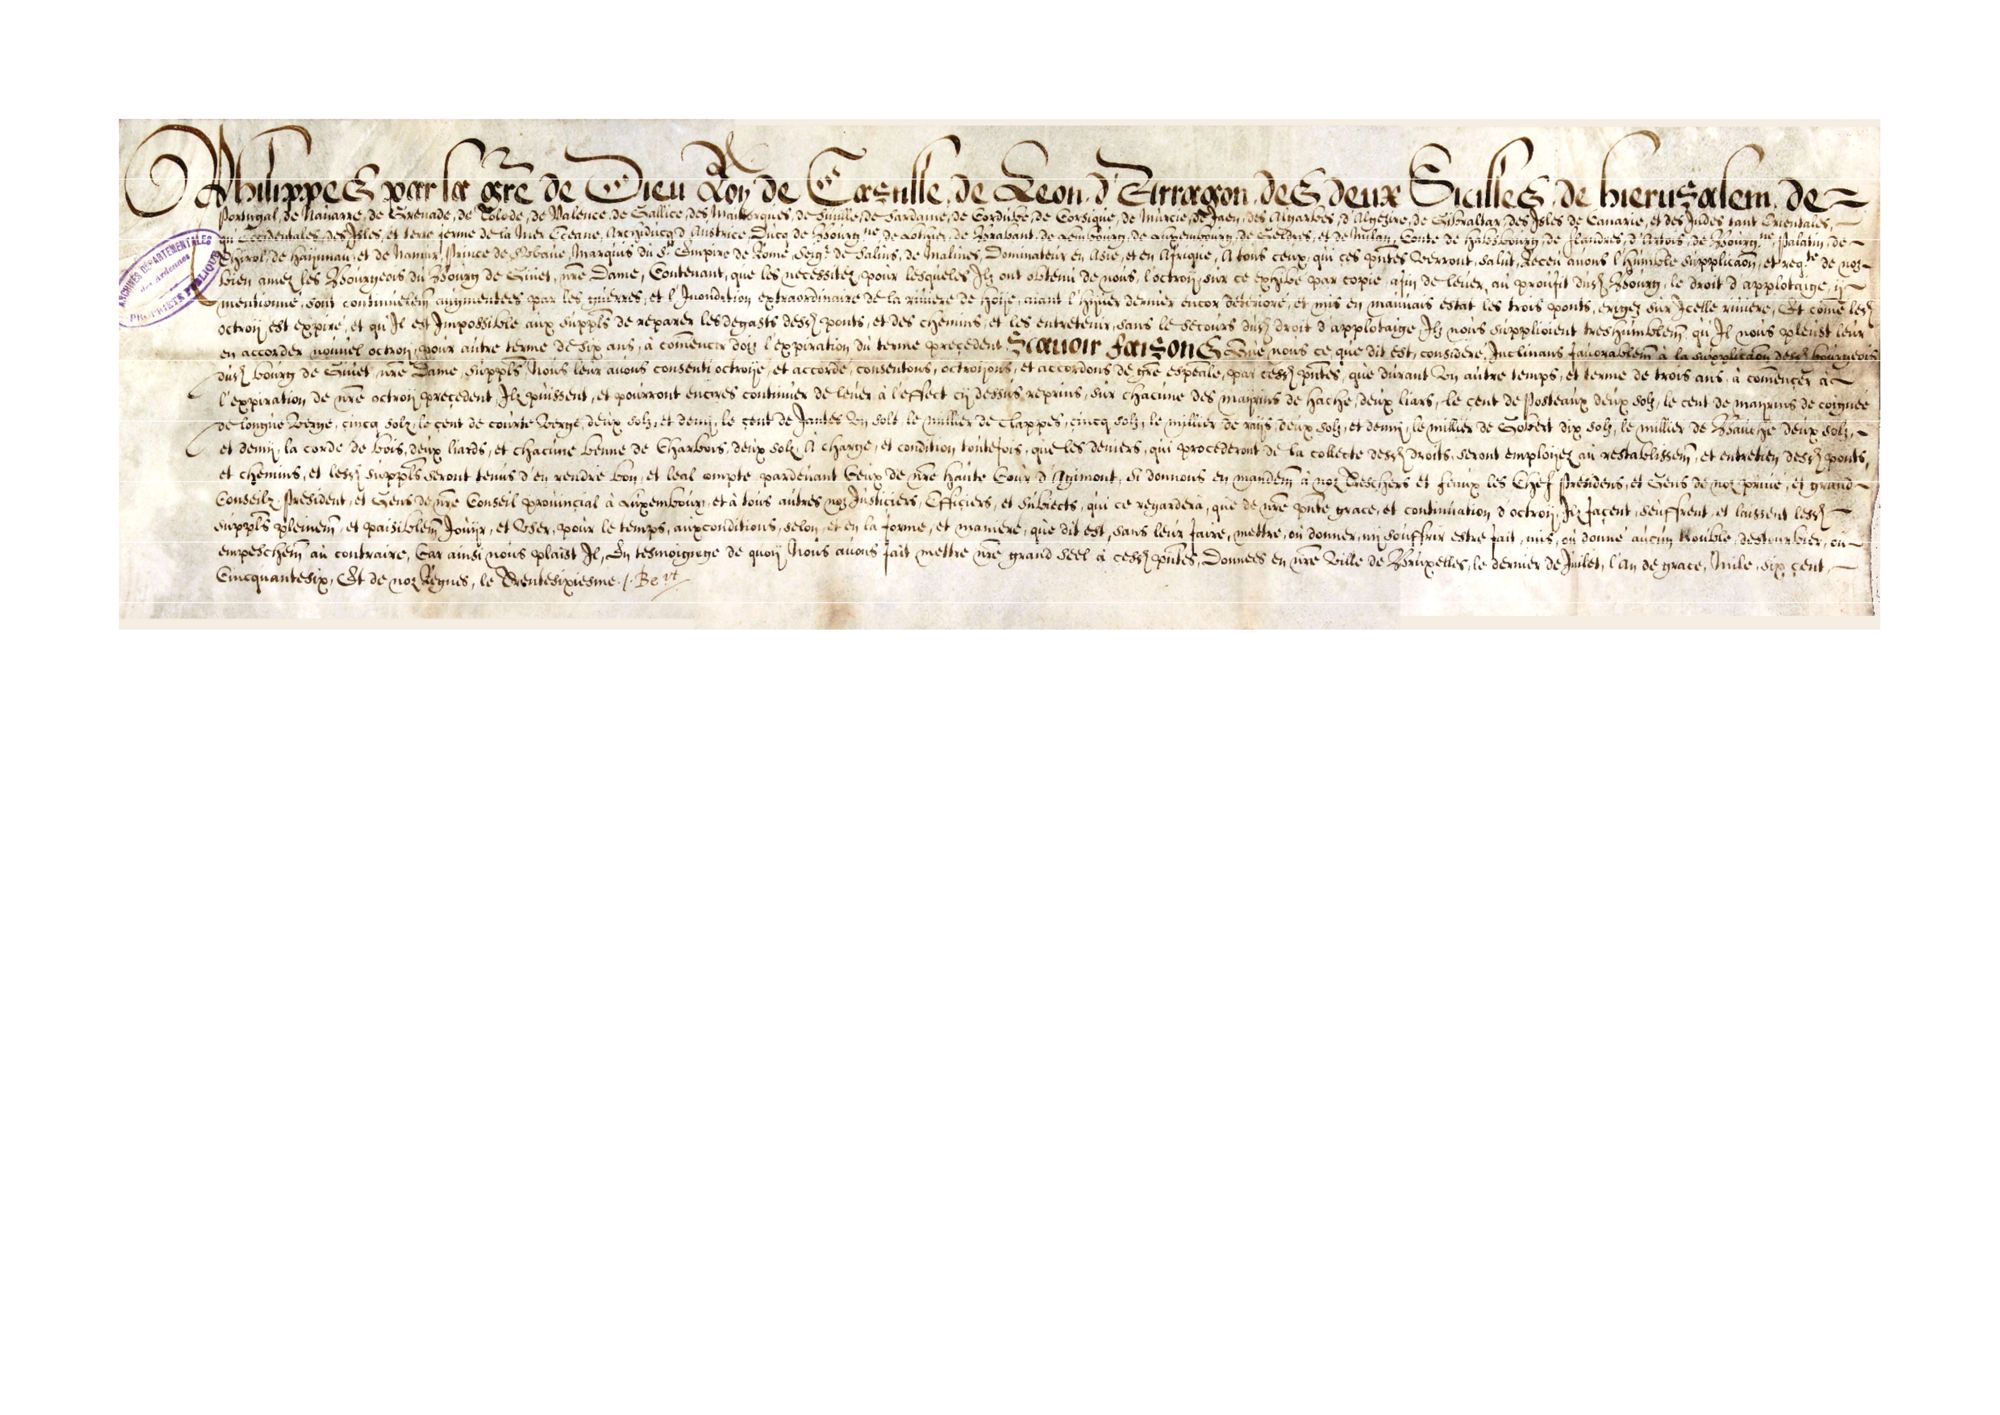 Philippes par la grē de Dieu Roy de Castille, de Leon, d'Arragon, des deux Sicilles, de hierusalem, de
Portugal, de Nauarre, de Grenade, de Tolede, de Valence, de Gallice, des Maiorques, de Seuille, de Sardaine, de Cordube, de Corsique, de Murcie, de Jaen, des Algarbes, d'Algezire, de Gibraltar, des Isles de Canarie, et des Indes tant Orientales,
qu Occidentales, des Isles, et terre ferme de la mer Oceane, Archiducq d'Austrice, Ducq de Bourgne, de Lothier, de Brabant, de Lembourg, de Luxembourg, de Geldres, et de Milan, Conte de Habsbourg, de Flandres, d'Artois, de Bourgne, Palatin, de
Thirol, de Haynnau, et de Namur, Prince de Swaue, Marquis du St Empire de Rome, Seigr de Salins, de Malines, Dominateur en Asie, et en Afrique, A tous ceux, qui ces pntes verront, salut, Receu auons l'humble supplicaōn, et reqte de noz
bien amez les Bourgeois du Bourg de Giuet, nrē Dame, Contenant, que les necessitez, pour lesquelles Ilz ont obtenu de nous, l'octroy, sur ce exhibé par copie, afin de leuer, au proufit dudt Bourg, le droit d'applotaige, y
mentionné, sont continuelem̄ augmentees par les guerres, et l'Inondation extraordinaire de la riuiere de Hoije, aiant l'hijuer dernier encor deterioré, et mis en mauuais estat les trois ponts, erigez sur Icelle riuiere, Et com̄e ledt
octroij est expiré, et qu'Il est Impossible aux suppls de reparer les degasts desdt ponts, et des chemins, et les entretenir, sans le secours dudt droit d'applotaige Ilz nous supplioient treshumblem̄, qu'Il nous pleust leur
en accorder nouuel octroij, pour autre terme de six ans, à com̄encer doiz l'expiration du terme precedent Scauoir faisons Que nous ce que dit est, consideré, Inclinans fauorablem̄ à la supplicaōn desdt bourgeois
dudt bourg de Giuet, nrē Dame, suppls Nous leur auons consenti octroijé, et accordé, consentons, octroijons, et accordons de grē espeāle, par cesdt pntes, que durant vn autre temps, et terme de trois ans, à com̄encer à
l'expiration de nrē octroij precedent Ilz puissent, et pourront encores continuer de leuer à l'effect cij dessus reprins, sur chacune des mayrins de hache, deux liars, le cent de Posteaux deux solz, le cent de mayrins de coignée
de longue verge, cincq solz, le cent de courte verge, deux solz, et demij, le cent de Jantes vn solt, le millier de Clappes, cincq solz, le millier de raijs, deux solz, et demij, le millier de Gobert dix solz, le millier de Bauche deux solz,
et demij, la corde de bois, deux liards, et chacune benne de Charbois, deux solz, A charge, et condition toutefois, que les deniers, qui procederont de la collecte desdt droits, seront emploijez au restablissem̄, et entretien desdt ponts,
et chemins, et lesdt suppls seront tenus d'en rendre bon, et leal compte, pardeuant Ceux de nrē haute Cour d'Agimont, Si donnons en mandem̄ à noz Treschers et feaux les Chef Presidens, et Gens de noz priué, et grand
Conseilz, President, et Gens de nrē Conseil prouincial à Luxembourg, et à tous autres noz Justiciers, Officiers, et subiects, qui ce regardera, que de nrē pnte grace, et continuation d'octroij, Ilz facent, seuffrent, et laissent lesdt
suppls pleinem̄, et paisiblem̄ Jouijr, et vser, pour le temps, aux conditions, selon, et en la forme, et maniere, que dit est, sans leur faire, mettre, ou donner, nij souffrir estre fait, mis, ou donné aucun trouble, destourbier, ou
empeschem̄ au contraire, Car ainsi nous plaist Il, En tesmoignage de quoij Nous auons fait mettre nrē grand seel à cesdt pntes, Donnees en nrē Ville de Bruxelles, le dernier de Juillet, l'An de grace, Mile, six cent,
Cincquantesix, Et de noz Regnes, le Trentesixiesme /. Bo vt
ARCHIVES DÉPARTEMENTALES
des Ardennes
PROPRIÉTÉ PUBLIQUE